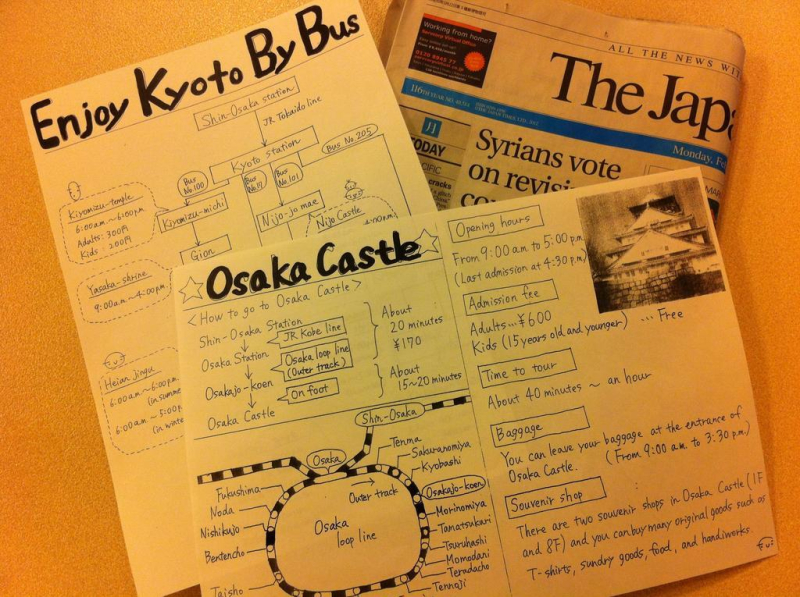 Enjoy Kyoto By Bus
Shin-Osaka station
JR Tokaido line
Kyoto station
Bus No.205
Bus No.100
Bus No.101
Kiyomizu-temple
6:00a.m.~6:00p.m.
Adults: 300円
Kids : 200円
Kiyomizu-michi
Nijo-jo mae
Nijo Castle
Gion
Yasaka-shrine
9:00a.m.~4:00p.m.
Heian Jingu
6:00 a.m.~6:00p.m.
(in summe
6:00 a.m.~5:00p
(in winte
Working from home?
ALL THE NEWS WIT
The Japa
Monday, Fe
JJ
TODAY
Syrians vote
on revisi
Osaka Castle
<How to go to Osaka Castle>
Shin-Osaka Station
JR Kobe line
Osaka Station
Osaka loop line
(Outer track)
About
20 minutes
¥170
Osakajo-koen
On foot
About
15~20 minutes
Osaka Castle
Shin-Osaka
Osaka
Tenma
Sakuranomiya
Kyobashi
Outer track
Osakajo-koen
Morinomiya
Tamatsukuri
Tsuruhashi
Momodani
Teradacho
Tennoji
Fukushima
Noda
Nishikujo
Bentencho
Taisho
Osaka
loop line
Opening hours
From 9:00 a.m. to 5:00 p.m.
(Last admission at 4:30 p.m.)
Admission fee
Adults...¥600
Kids (15 years old and younger) ... Free
Time to tour
About 40 minutes ~ an hour
Baggage
You can leave your baggage at the entrance of
Osaka Castle. (From 9:00 a.m. to 3:30 p.m.)
Souvenir shop
There are two souvenir shops in Osaka Castle (1F
and 8F) and you can buy many original goods such as
T-shirts, sundry goods, food, and handiworks.